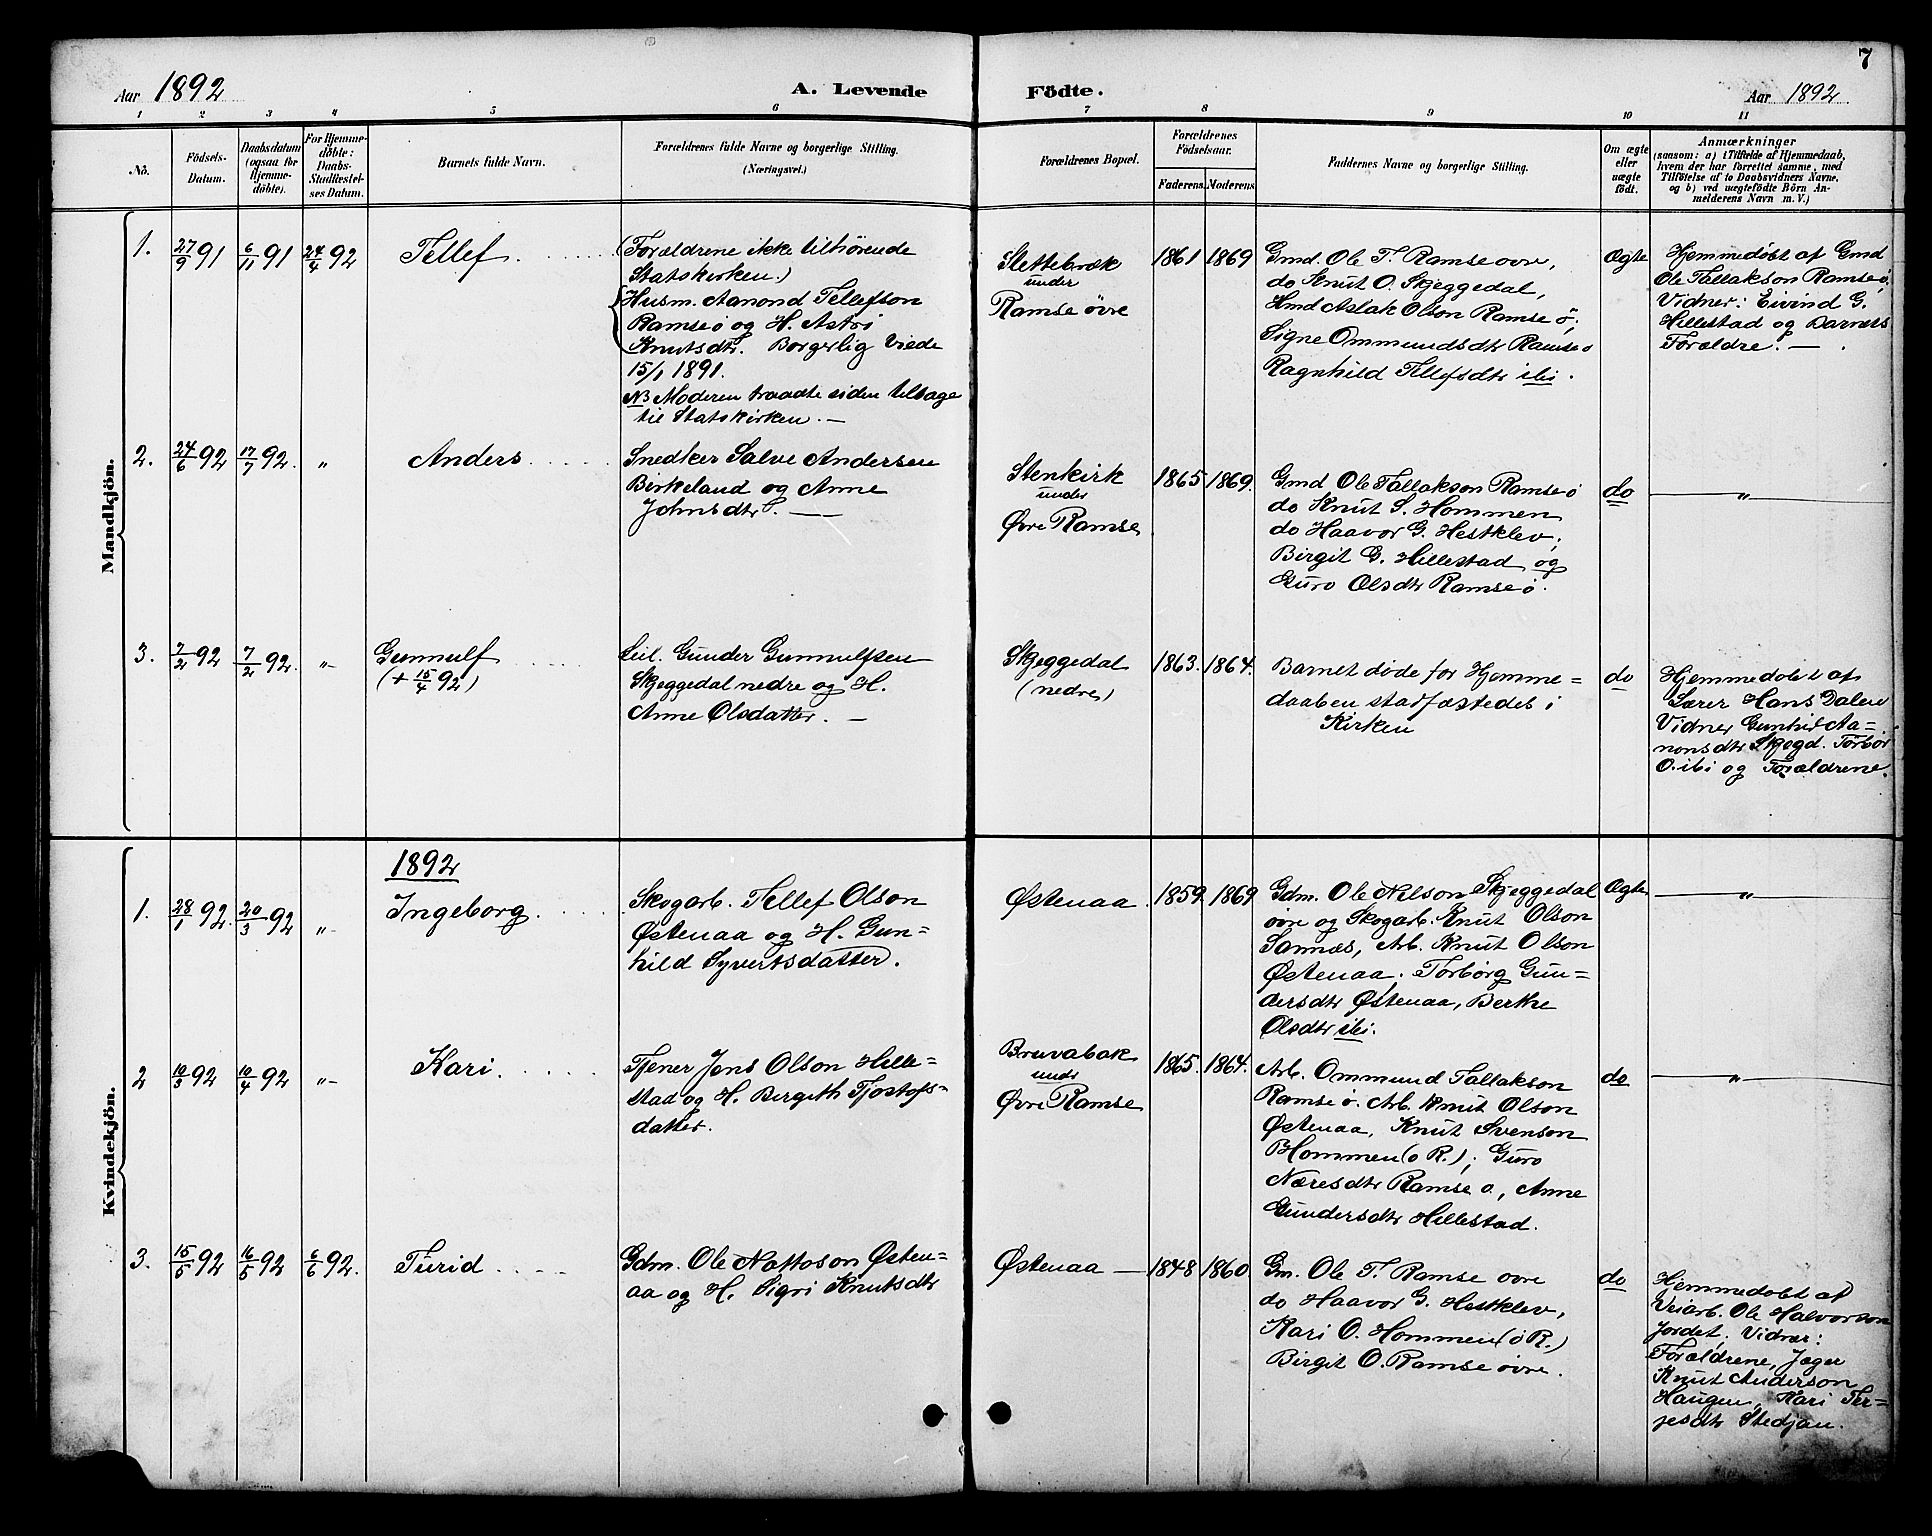 7
Aar 1892
A. Levende
Födte.
Aar 1892
1 2 3 4 5 6 7 8 9 10 11
No.
Födsels-
Datum.
Daabsdatum
(ogsaa for
Hjemme-
döbte).
For Hjemme-
döbte:
Daabs-
Stadfæstel-
ses Datum.
Barnets fulde Navn.
Forældrenes fulde Navne og borgerlige Stilling.
(Næringsvei.)
Forældrenes Bopæl.
Forældrenes
Födselsaar.
Faderens. Moderens.
Faddernes Navne og borgerlige Stilling.
Om ægte
eller
uægte
födt.
Anmærkninger
(saasom: a) i Tilfælde af Hjemmedaab,
hvem der har forrettet samme, med
Tilföielse af to Daabsvidners Navne,
og b) ved uægtefödte Börn An-
melderens Navn m. V.)
Mandkjön.
1.
27/9 91
6/11 91
24/4 92
Tellef
(Forældrene ikke tilhørende
Statskirken.)
Husm. Aanond Tellefson
Ramse ø og H. Astri
Knutsdtr. Borgerlig Viede
15/1 1891.
NB Moderen traadte siden tilbage
til Statskirken. —
Slettebræk
under
Ramse øvre
1861
1869
Gmd. Ole T. Ramse ovre,
do Knut O. Skjeggedal,
Hmd Aslak Olson Ramse ø,
Signe Ommundsdtr Ramse ø
Ragnhild Tellefsdtr ibi.
Ægte
Hjemmedøbt af Gmd
Ole Tallakson Ramse ø,
Vidner: Eivind G.
Hillestad og Barnets
Forældre. —
2.
24/6 92
17/7 92.
"
Anders
Snedker Salve Andersen
Birkeland og Anne
Johnsdtr. —
Stenkirk
under
Øvre Ramse
1865
1869.
Gmd Ole Tallakson Ramse ø
do Knut S. Hommen
do Haavor G. Hestklev,
Birgit G. Hillestad og
Guro Olsdtr Ramse ø.
do
"
3.
7/2 92
7/2 92.
"
Gunnulf
(+ 15/4 92)
Leil. Gunder Gunnulfsen
Skjeggedal nedre og H.
Anne Olsdatter. —
Skjeggedal
(nedre)
1863.
1864.
Barnet døde før Hjemme=
daaben stadfæstedes i
Kirken
do
Hjemmedøbt af
Lærer Hans Dalen
Vidner Gunhil Aa=
nonsdtr Skjegd. Torbor
O. ibi og Forældrene.
Kvindekjön.
1892
1.
28/1 92.
20/3 92
"
Ingeborg
Skogarb. Tellef Olson
Østenaa og H. Gun=
hild Syvertsdatter.
Østenaa
1859.
1869
Gdm. Ole Nilson Skjeggedal
ovre og Skogarb. Knut Olson
Sannæs, Arb. Knut Olson
Østenaa. Torborg Gun=
dersdtr Østenaa, Berthe
Olsdtr ibi.
Ægte
"
2
10/3 92
10/4 92
"
Kari.
Tjener Jens Olson Hille=
stad og H. Bergith Tjostofs=
datter.
Bruvabak
undr
Øvre Ramse
1865.
1864.
Arb. Ommund Tallakson
Ramse ø. Arb. Knut Olson
Østenaa, Knut Svenson
Hommen (o R.); Guro
Næresdtr Ramse o, Anne
Gundersdtr Hillestad.
do
"
3.
15/5 92
16/5 92
6/6 92.
Turid
Gdm. Ole Nottoson Østen=
aa og H. Sigri Knutsdtr
Østenaa —
1848
1860
Gm. Ole T. Ramse ovre
do Haavor G. Hestklev,
Kari O. Hommen (ø R.)
Birgit O. Ramse øvre.
do
Hjemmedøbt af
Veiarb. Ole Halvorson
Jordet. Vidner:
Forældrene, Jæger
Knut Anderson
Haugen, Kari Ter=
jesdtr Stedjan.